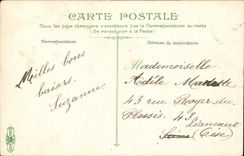 CARTE POSTALE
Tous les pays étrangers n'acceptent pas la Correspondance au recto
(Se renseigner à la Poste)
Correspondance
Adresse du destinataire
Milles bons
baisers.
Suzanne.
Mademoiselle
Adèle
43 rue Roger du
Plessis. 43
Liancourt
(Oise)